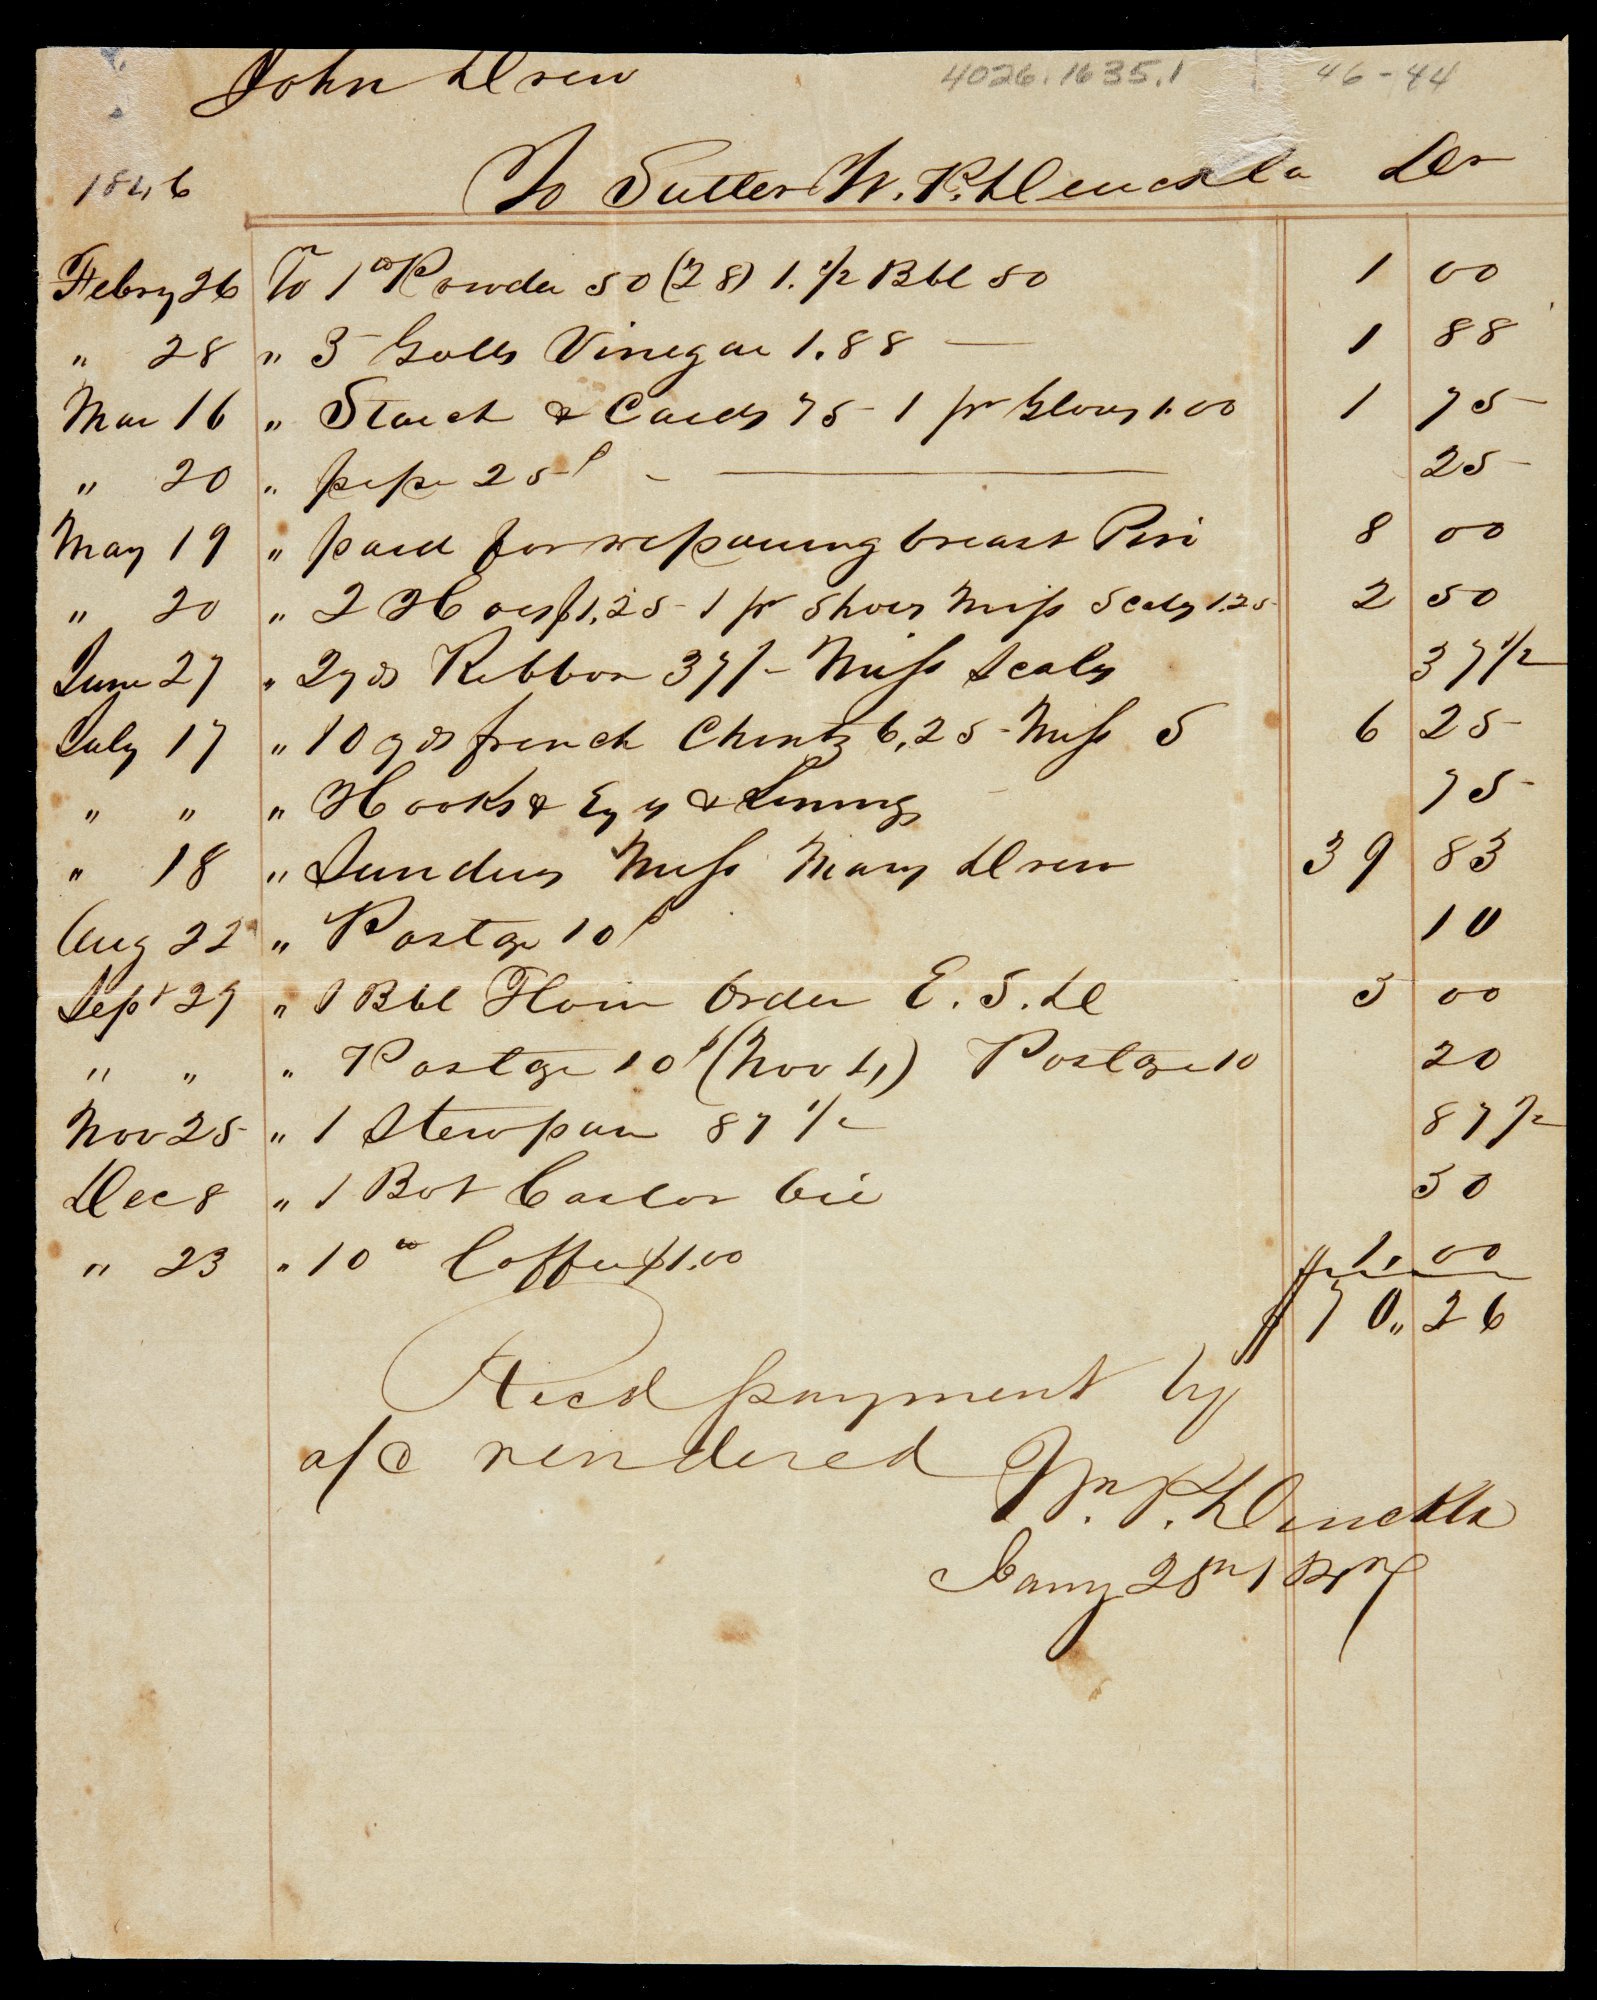 John Drew 4026.1635.1 46-44
1846 To Sutler W. P. Denckla Dr
Febry 26 To 1 lb Powder 50 (28) 1. 1/2 Bbl 50 1 00
" 28 " 3 Galls Vinegar 1.88 — 1 88
Mar 16 " Starch & Cards 75 - 1 pr Gloves 1.00 1 75
" 20 " pipe 25 ¢ - — 25
May 19 " paid for repairing breast Pin 8 00
" 20 " 2 Hoes $1,25 - 1 pr Shoes Miss Scaly 1.25 2 50
June 27 " 2 yds Ribbon 37/- Miss Scaly 37 1/2
July 17 " 10 yds french Chintz 6,25 - Miss S 6 25
" " " Hooks & Eyes & Lining 75
" 18 " Sundres Miss Mary Drew 39 83
Aug 22 " Postge 10 ¢ 10
Sept 29 " 1 Bbl Flour Order E. S. D 5 00
" " " Postge 10 ¢ (Nov 1,) Postge 10 20
Nov 25 " 1 Stewpan 87 1/2 87 1/2
Dec 8 " 1 Bot Castor Oil 50
" 23 " 10 lb Coffee $1.00 1, 00
$70,, 26
Recd payment by
a/c rendered
Wm. P. Denckla
Jany 28th 1847